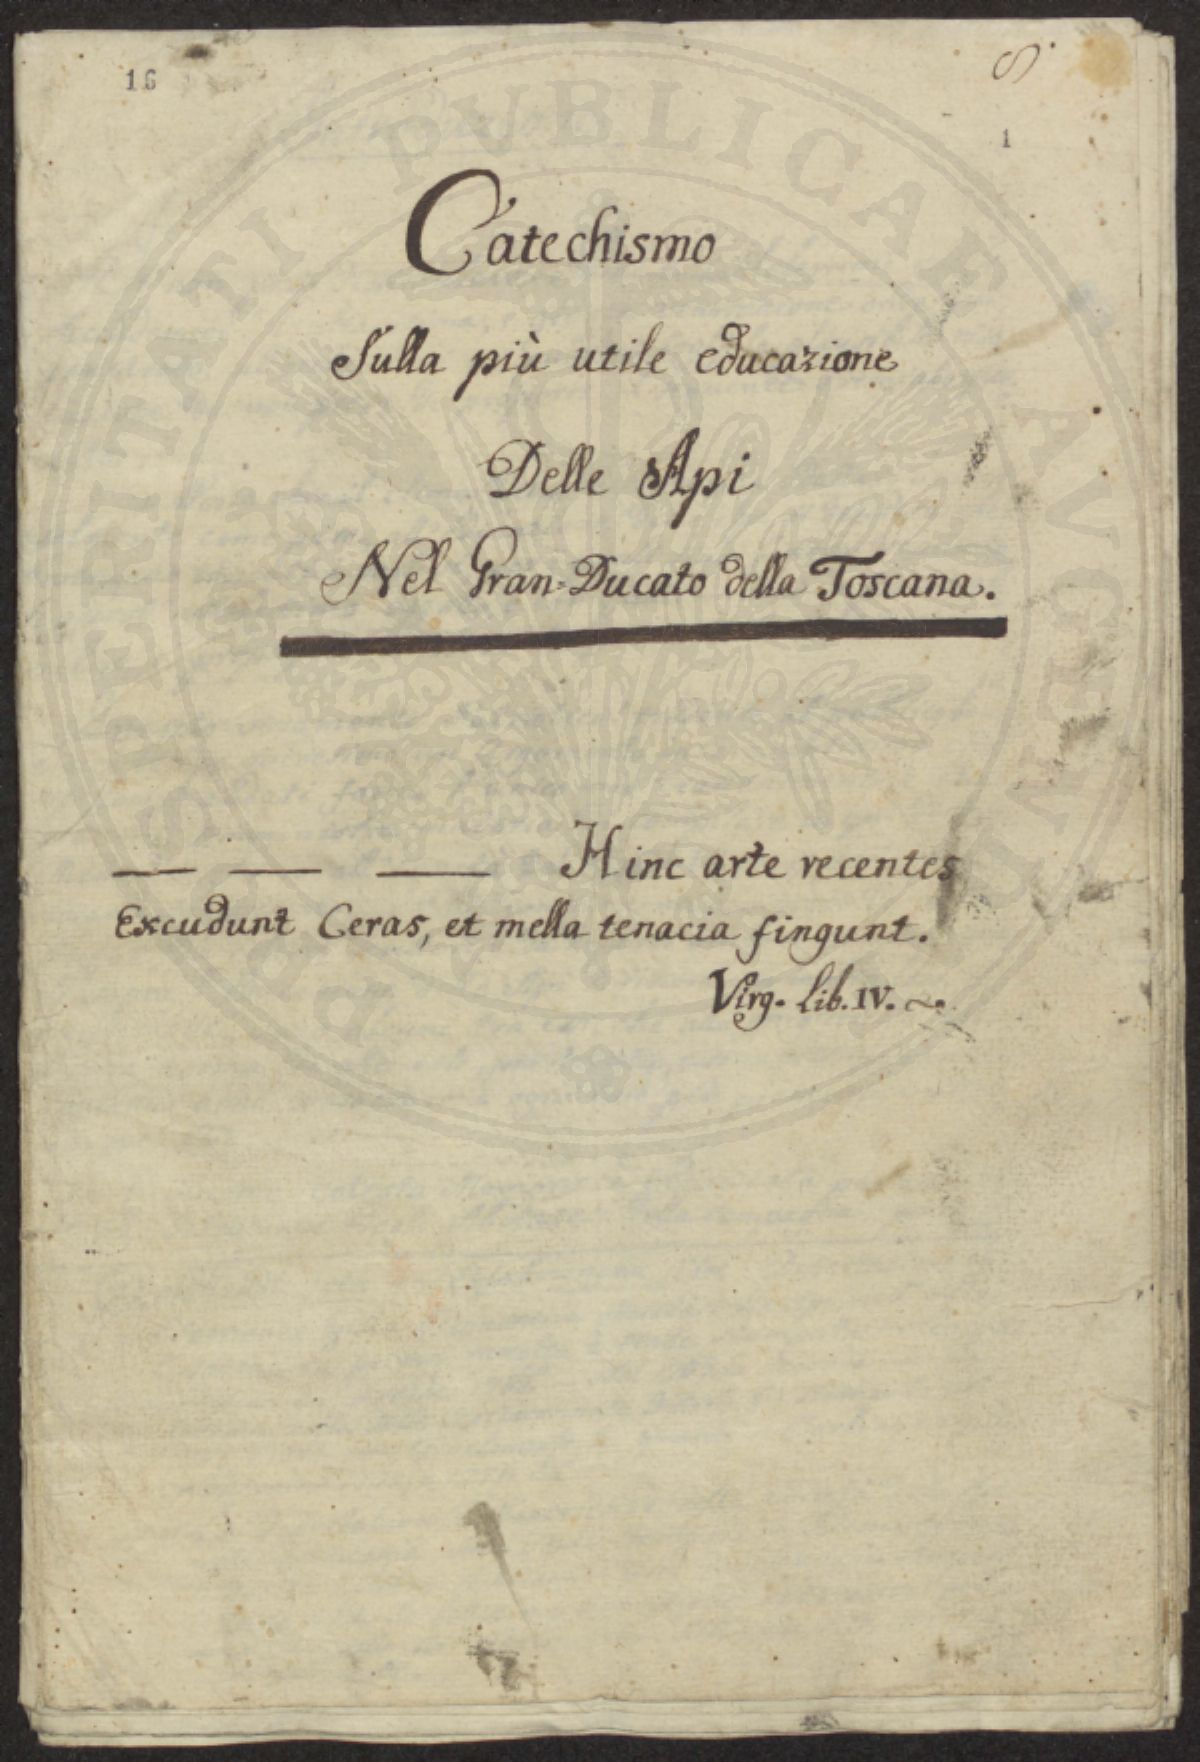 16
1
Catechismo
Sulla più utile educazione
Delle Api
Nel Gran=Ducato della Toscana.
— — — Hinc arte recentes
Excudunt Ceras, et mella tenacia fingunt.
Virg. Lib. IV.
PROSPERITATI PUBLICAE AUGENDAE